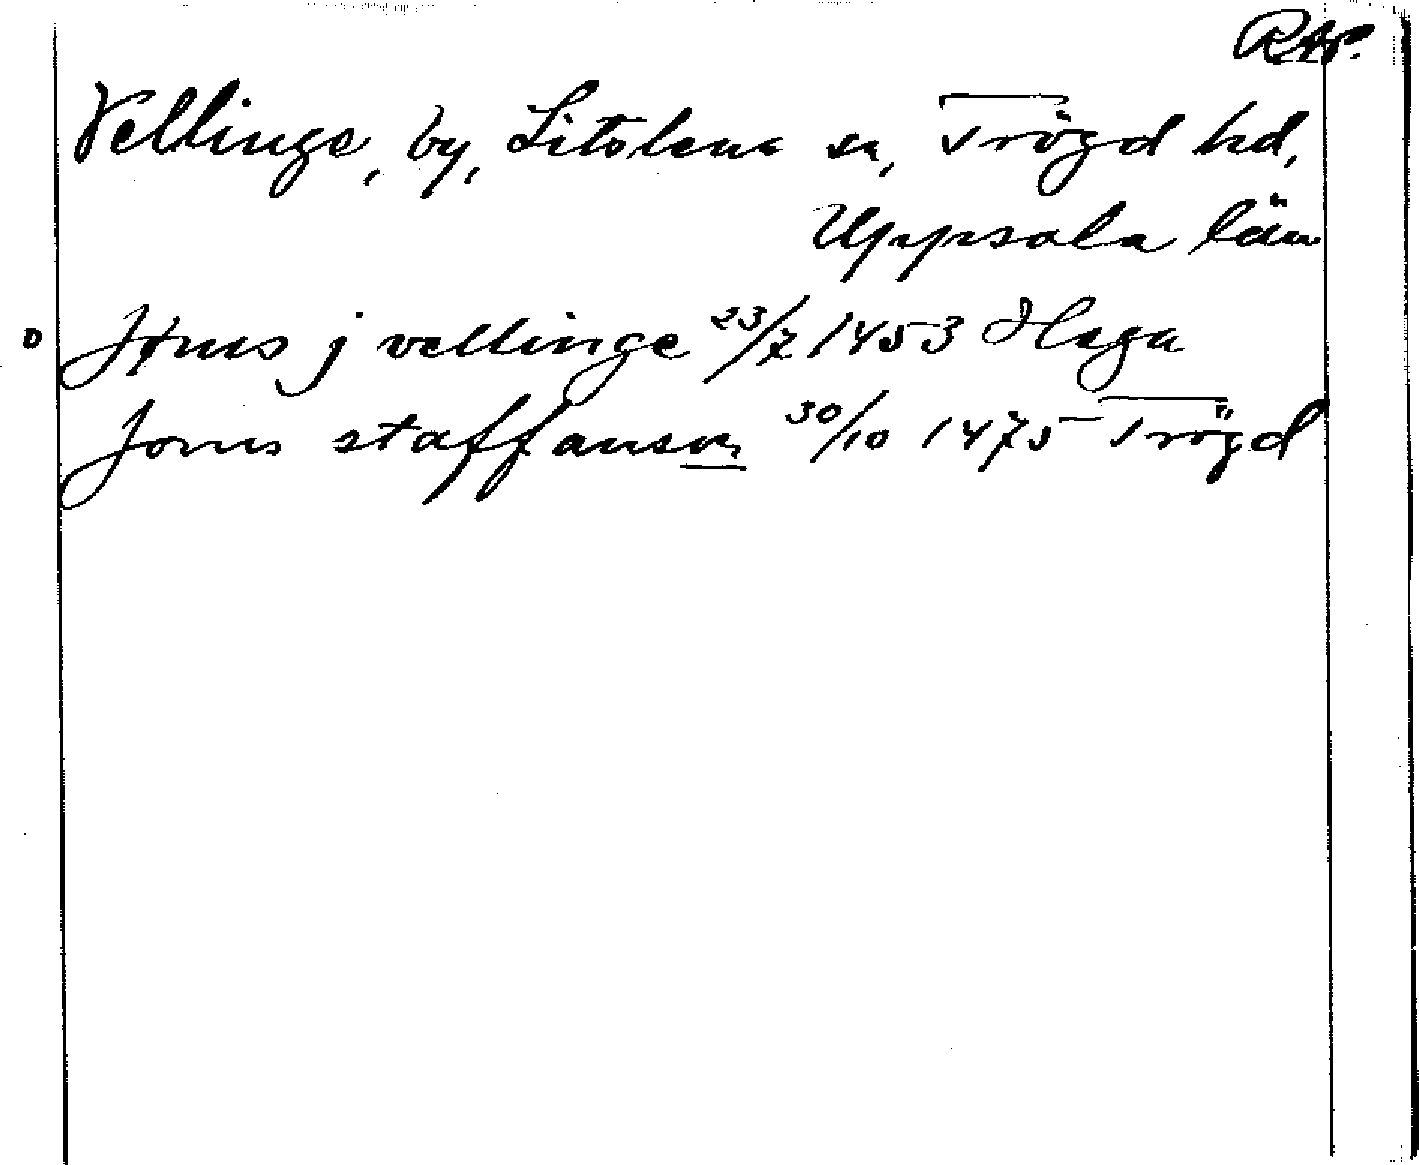 RAP.
Vellinge, by, Litslena sn, Trögd hd,
Uppsala län
o Jönis j vellinge 23/7 1453 Haga
Jonis staffanson 30/10 1475 Trögd